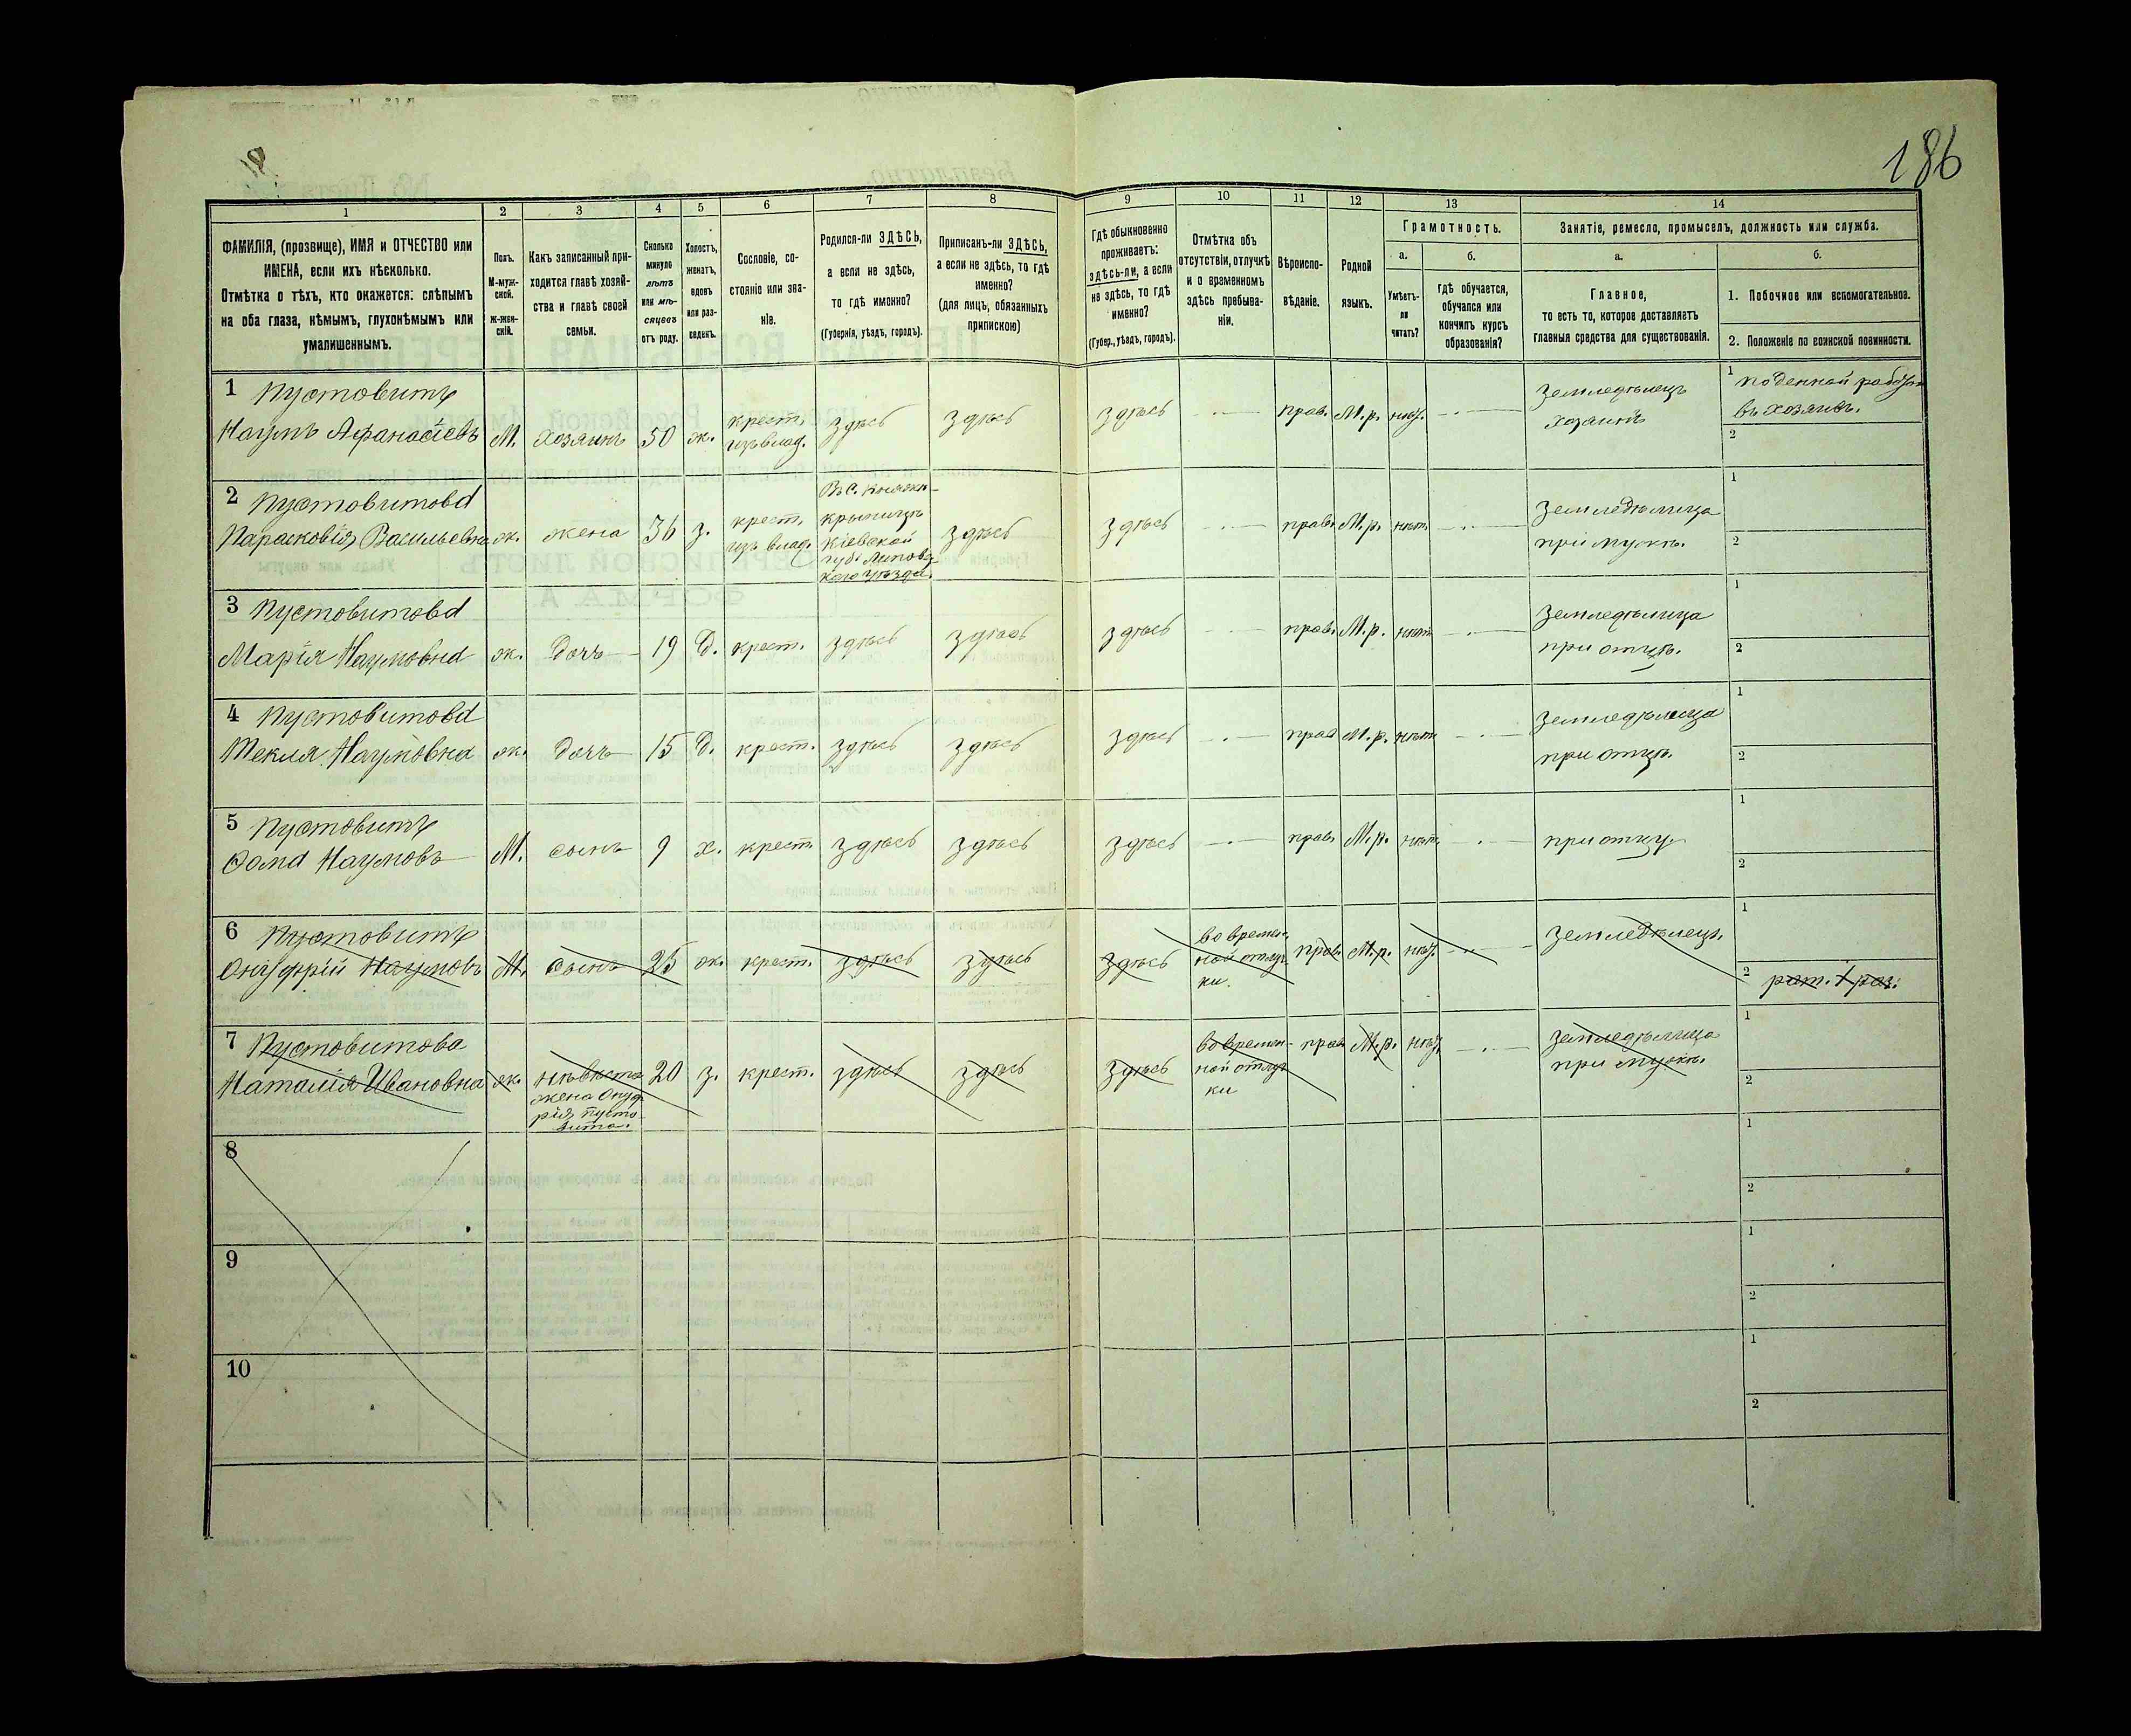 186
1 2 3 4 5 6 7 8 9 10 11 12 13 14
ФАМИЛІЯ, (прозвище), ИМЯ и ОТЧЕСТВО или
ИМЕНА, если ихъ нѣсколько.
Отмѣтка о тѣхъ, кто окажется: слѣпымъ
на оба глаза, нѣмымъ, глухонѣмымъ или
умалишеннымъ.
Полъ.
М-муж-
ской.
Ж-жен-
скій.
Какъ записанный при-
ходится главѣ хозяй-
ства и главѣ своей
семьи.
Сколько
минуло
лѣтъ
или мѣ-
сяцевъ
отъ роду.
Холостъ,
женатъ,
вдовъ
или раз-
веденъ.
Сословіе, со-
стояніе или зва-
ніе.
Родился-ли ЗДѢСЬ,
а если не здѣсь,
то гдѣ именно?
(Губернія, уѣздъ, городъ).
Приписанъ-ли ЗДѢСЬ,
а если не здѣсь, то гдѣ
именно?
(для лицъ, обязанныхъ
припискою)
Гдѣ обыкновенно
проживаетъ:
здѣсь-ли, а если
не здѣсь, то гдѣ
именно?
(Губер., уѣздъ, городъ).
Отмѣтка объ
отсутствіи, отлучкѣ
и о временномъ
здѣсь пребыва-
ніи.
Вѣроиспо-
вѣданіе.
Родной
языкъ.
Грамотность.
а.
Умѣетъ-
ли
читать?
б.
гдѣ обучается,
обучался или
кончилъ курсъ
образованія?
Занятіе, ремесло, промыселъ, должность или служба.
а.
Главное,
то есть то, которое доставляетъ
главныя средства для существованія.
б.
1. Побочное или вспомогательное.
2. Положеніе по воинской повинности.
1 Пустовитъ
Наумъ Афанасіевъ М. хозяинъ 50 ж.
крест.
изъ влад.
здѣсь здѣсь здѣсь — · — прав. М.р. нѣт. — · —
Земледѣлецъ
хозяинъ
1 поденной работы
въ хозяив.
2
2 Пустовитова
Парасковія Васильевна ж. жена 36 з.
крест.
изъ влад.
Въ с. Княжи-
крыницѣ
Кіевской
губ. Липовец-
каго уѣзда.
здѣсь здѣсь — · — прав. М.р. нѣт. — · —
Земледѣлица
при мужѣ.
1
2
3 Пустовитова
Марія Наумовна ж. дочь 19 д. крест. здѣсь здѣсь здѣсь — · — прав. М.р. нѣт. — · —
Земледѣлица
при отцѣ.
1
2
4 Пустовитова
Текля Наумовна ж. дочь 15 д. крест. здѣсь здѣсь здѣсь — · — прав. М.р. нѣт. — · —
Земледѣлица
при отцѣ.
1
2
5 Пустовитъ
Фома Наумовъ М. сынъ 9 х. крест. здѣсь здѣсь здѣсь — · — прав. М.р. нѣт. — · — при отцу.
1
2
6 Пустовитъ
Онуфрій Наумовъ М. сынъ 25 ж. крест. здѣсь здѣсь здѣсь
во времен-
ной отлуч-
ки.
прав. М.р. нѣт. — · — земледѣлецъ.
1
2
7 Пустовитова
Наталія Ивановна ж.
невѣстка
жена Онуф-
рія Пусто-
вита.
20 з. крест. здѣсь здѣсь здѣсь
во времен-
ной отлуч-
ки
прав. М.р. нѣт. — · —
Земледѣлица
при мужѣ.
1
2
8
1
2
9
1
2
10
1
2